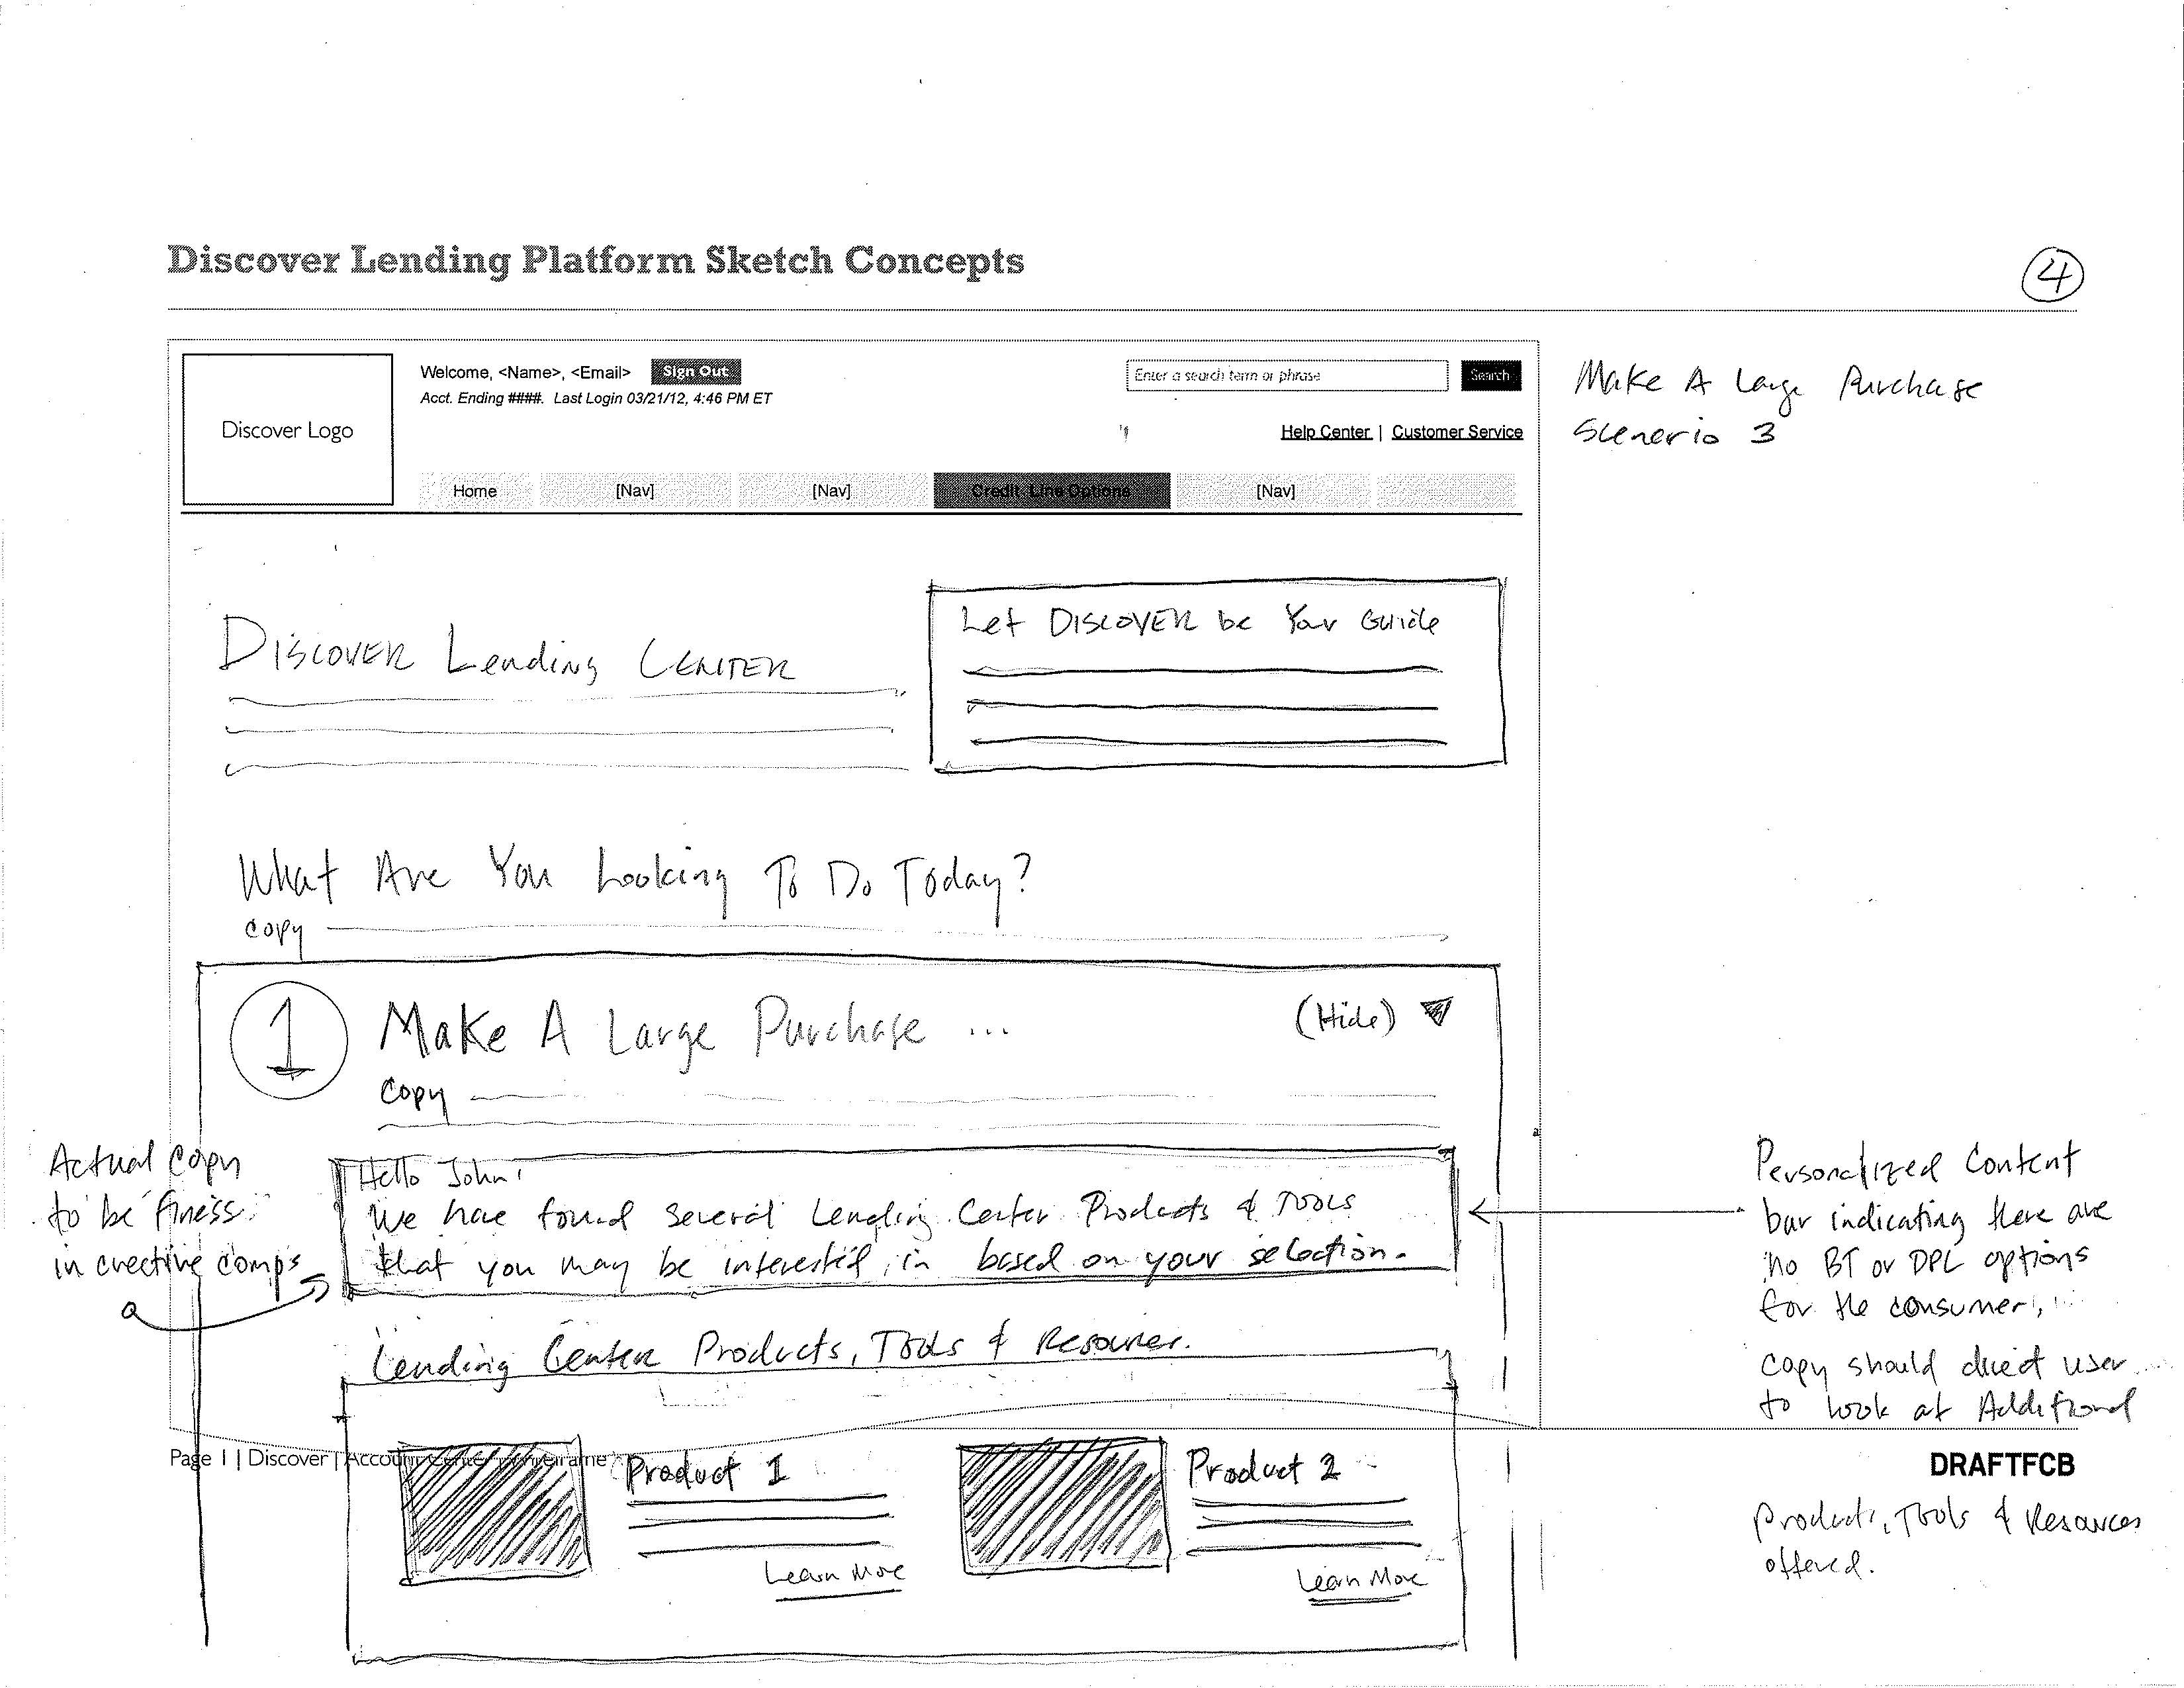 Discover Lending Platform Sketch Concepts
4
Discover Logo
Welcome, <Name>, <Email> Sign Out
Acct. Ending ####. Last Login 03/21/12, 4:46 PM ET
Enter a search term or phrase Search
Help Center | Customer Service
Home [Nav] [Nav] Credit Line Options [Nav]
Make A Large Purchase
Scenerio 3
DISCOVER Lending CENTER
Let DISCOVER be Your Guide
What Are You Looking To Do Today?
copy
1 Make A Large Purchase ... (Hide)
Copy
Actual Copy
to be finess
in creective comps
Hello John!
We have found several Lending Center Products & Tools
that you may be interested in based on your selection.
Personalized Content
bar indicating there are
no BT or DPL options
for the consumer,
copy should direct user
to look at Additional
Lending Center Products, Tools & Resources.
Page 1 | Discover | Account Center Wireframe
DRAFTFCB
Product 1
Learn More
Product 2
Learn More
Products, Tools & Resources
offered.